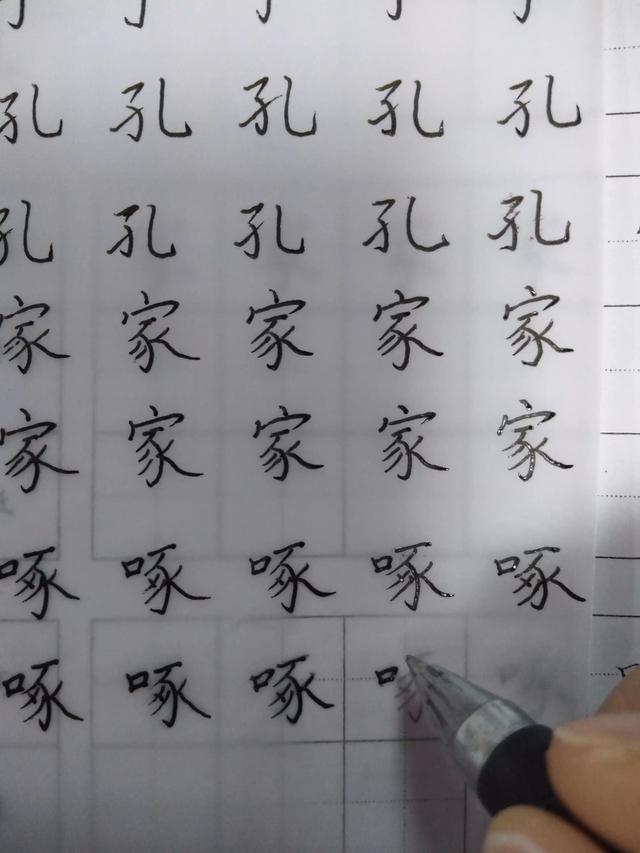 孔 孔 孔 孔 孔
孔 孔 孔 孔 孔
家 家 家 家 家
家 家 家 家 家
啄 啄 啄 啄 啄
啄 啄 啄